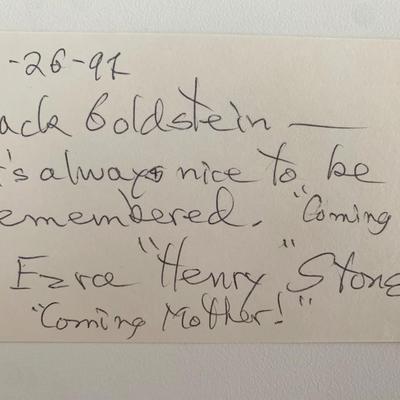 -26-91
ack Goldstein —
t's always nice to be
emembered. "Coming
Ezra "Henry" Stone
"Coming Mother!"